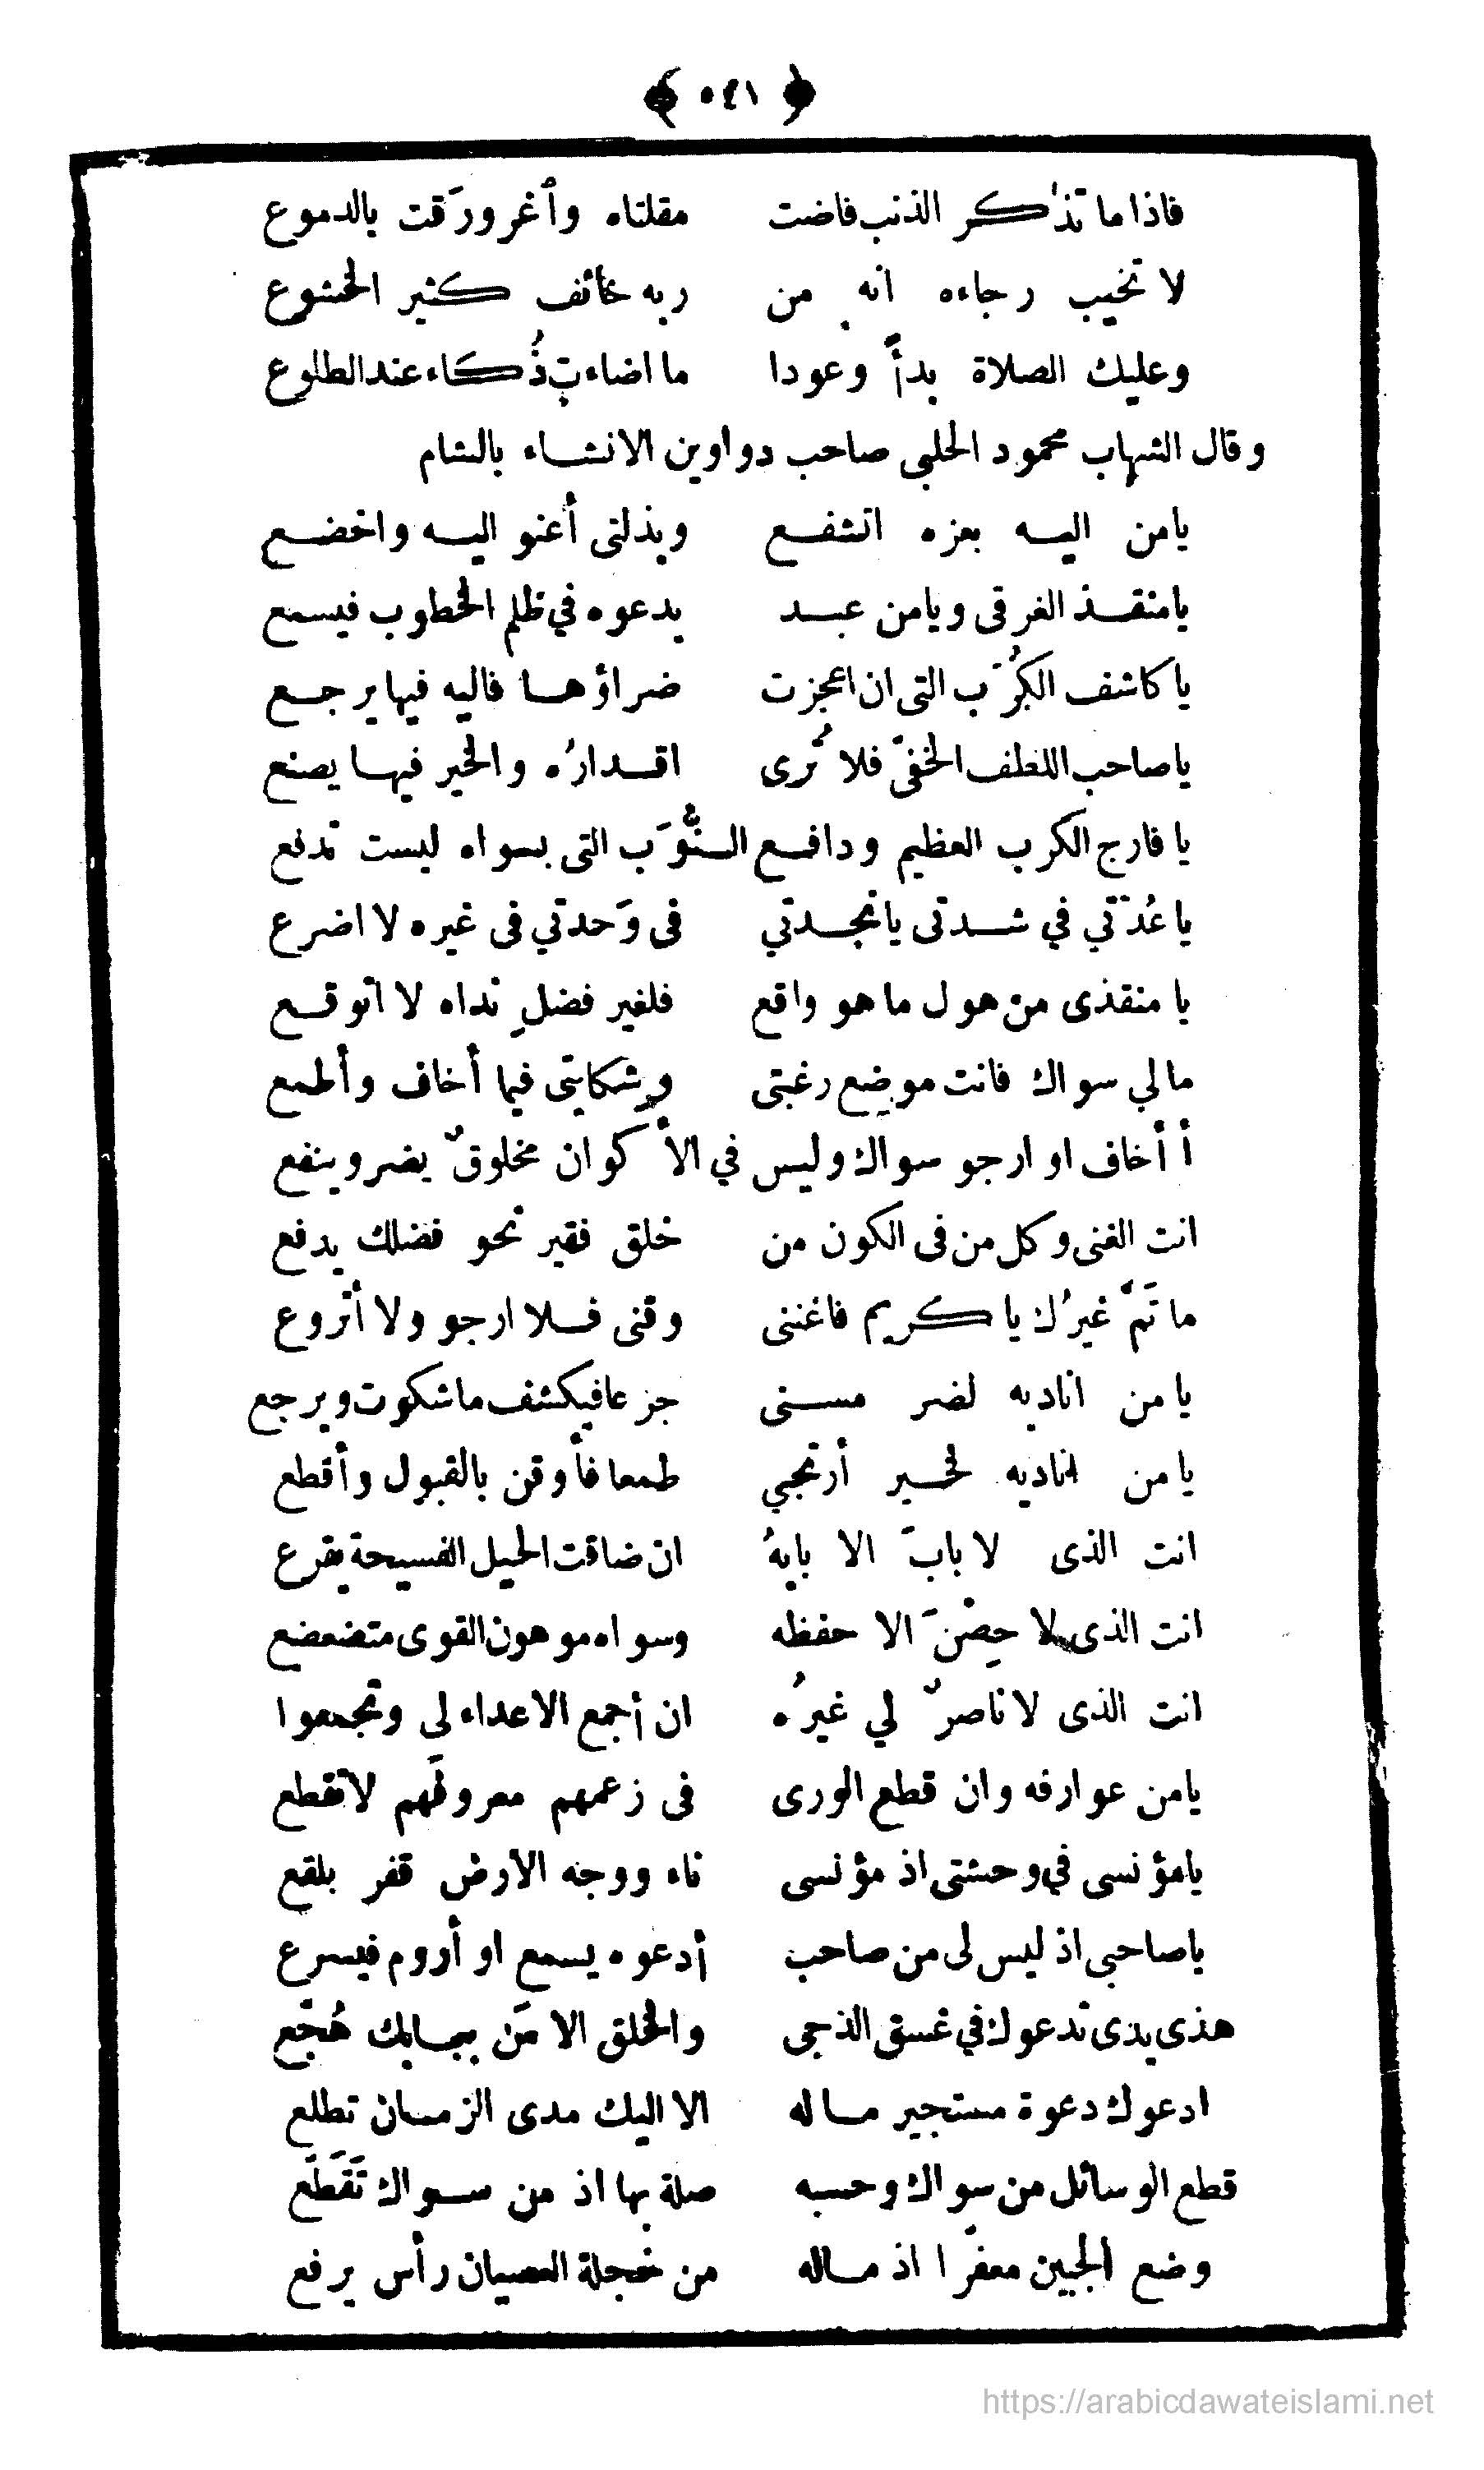 ﴿ ٥٤١ ﴾
فاذا ما تذكر الذنب فاضت مقلتاه وٱغرورَقت بالدموع
لا تخيب رجاءه انه من ربه خائف كثير الخشوع
وعليك الصلاة بدأً وعودا ما اضاءت ذُكاء عند الطلوع
وقال الشهاب محمود الحلبي صاحب دواوين الانشاء بالشام
يامن اليه بعزه اتشفع وبذلتي أعنو اليه واخضع
يامنقذ الغرقى ويامن عبد يدعوه في ظلم الخطوب فيسمع
يا كاشف الكُرَب التي ان اعجزت ضراؤها فاليه فيها يرجع
ياصاحب اللطف الخفيّ فلا تُرى اقدارُه والخير فيها يصنع
يا فارج الكرب العظيم ودافع النُّوَب التي بسواه ليست تدفع
يا عُدّتي في شدتي يا نجدتي في وَحدتي في غيره لا اضرع
يا منقذي من هول ما هو واقع فلغير فضلِ نداه لا اتوقع
مالي سواك فانت موضِع رغبتي وشكايتي فيما أخاف وأطمع
أ أخاف او ارجو سواك وليس في الأكوان مخلوقٌ يضر وينفع
انت الغني وكل من في الكون من خلق فقير نحو فضلك يدفع
ما ثَمّ غيرُك يا كريم فاغنني وقني فلا ارجو ولا أتروع
يا من اناديه لضر مسني جزعا فيكشف ما شكوت ويرجع
يا من اناديه لخير أرتجي طمعا فأوقن بالقبول وأقطع
انت الذي لا بابَ الا بابهُ ان ضاقت الحيل الفسيحة يقرع
انت الذي لا حِصْنَ الا حفظه وسواه موهون القوى متضعضع
انت الذي لا ناصرٌ لي غيرُه ان أجمع الاعداء لي وتجمعوا
يامن عوارفه وان قطع الورى في زعمهم معروفَهم لا تقطع
يامؤنسي في وحشتي اذ مؤنسي ناء ووجه الارض قفر بلقع
ياصاحبي اذ ليس لي من صاحب أدعوه يسمع او أروم فيسرع
هذي يدي تدعوك في غسق الدجى والخلق الا مَن ببابك هُجّع
ادعوك دعوة مستجير ماله الا اليك مدى الزمان تطلع
قطع الوسائل من سواك وحسبه صلة بها اذ من سواك تَقَطَّع
وضع الجبين معفّرا اذ ماله من خجلة العصيان رأس يرفع
https://arabicdawateislami.net